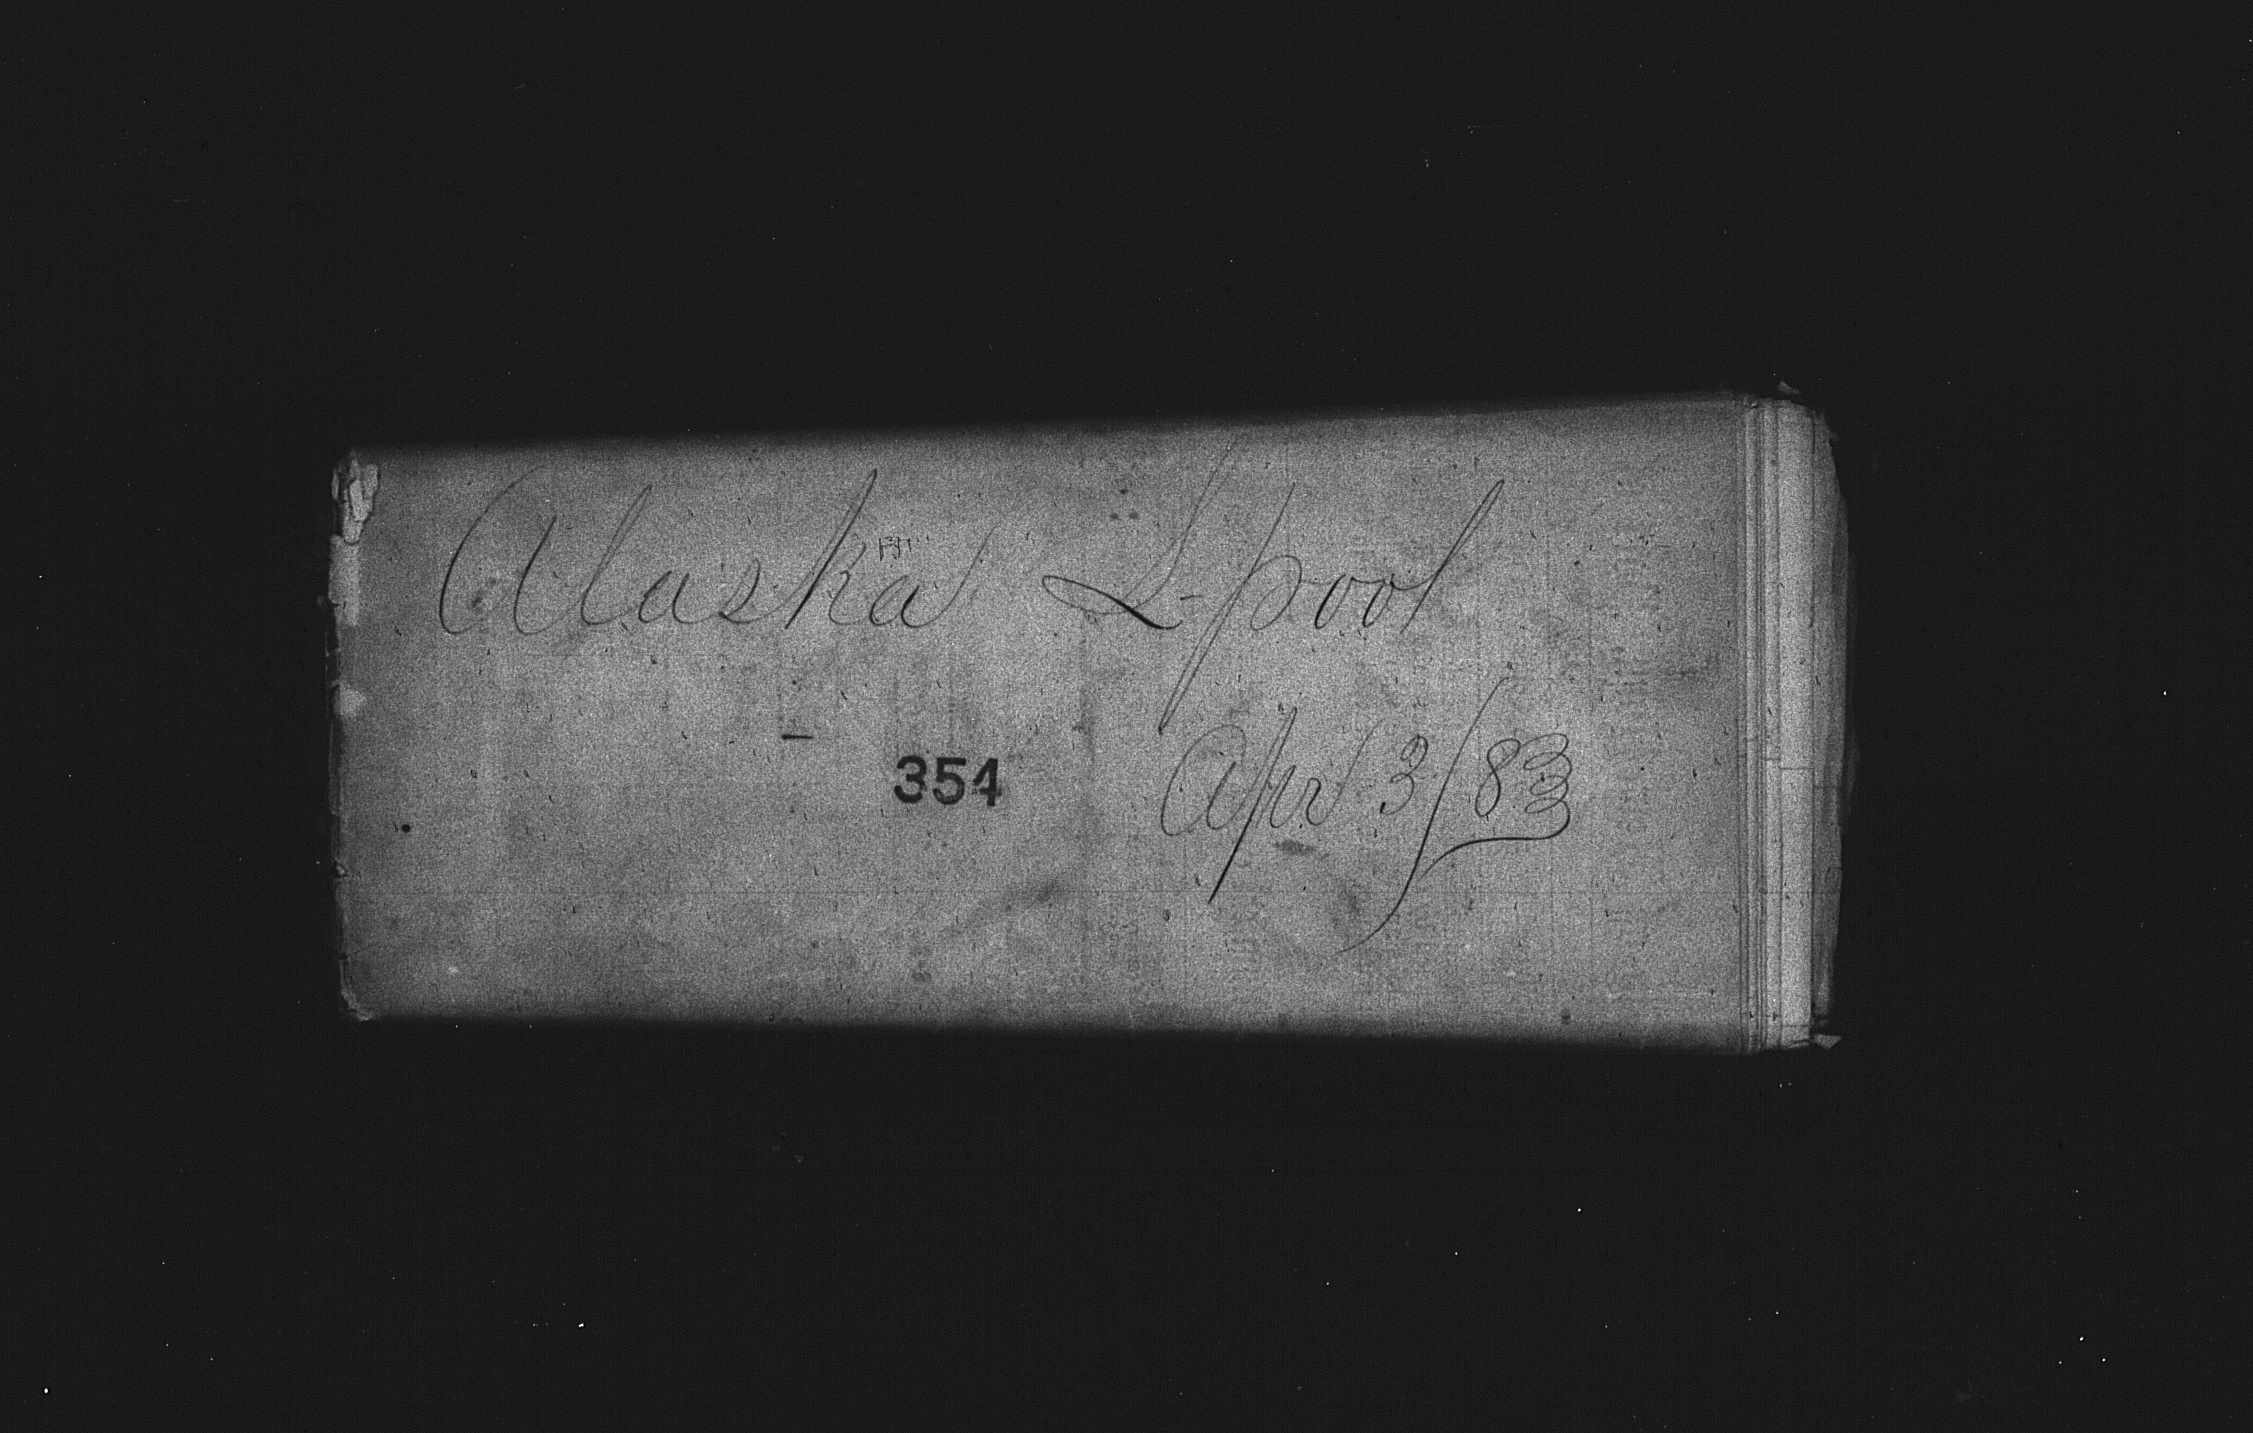 Alaska L-pool
354
Apr 3/83